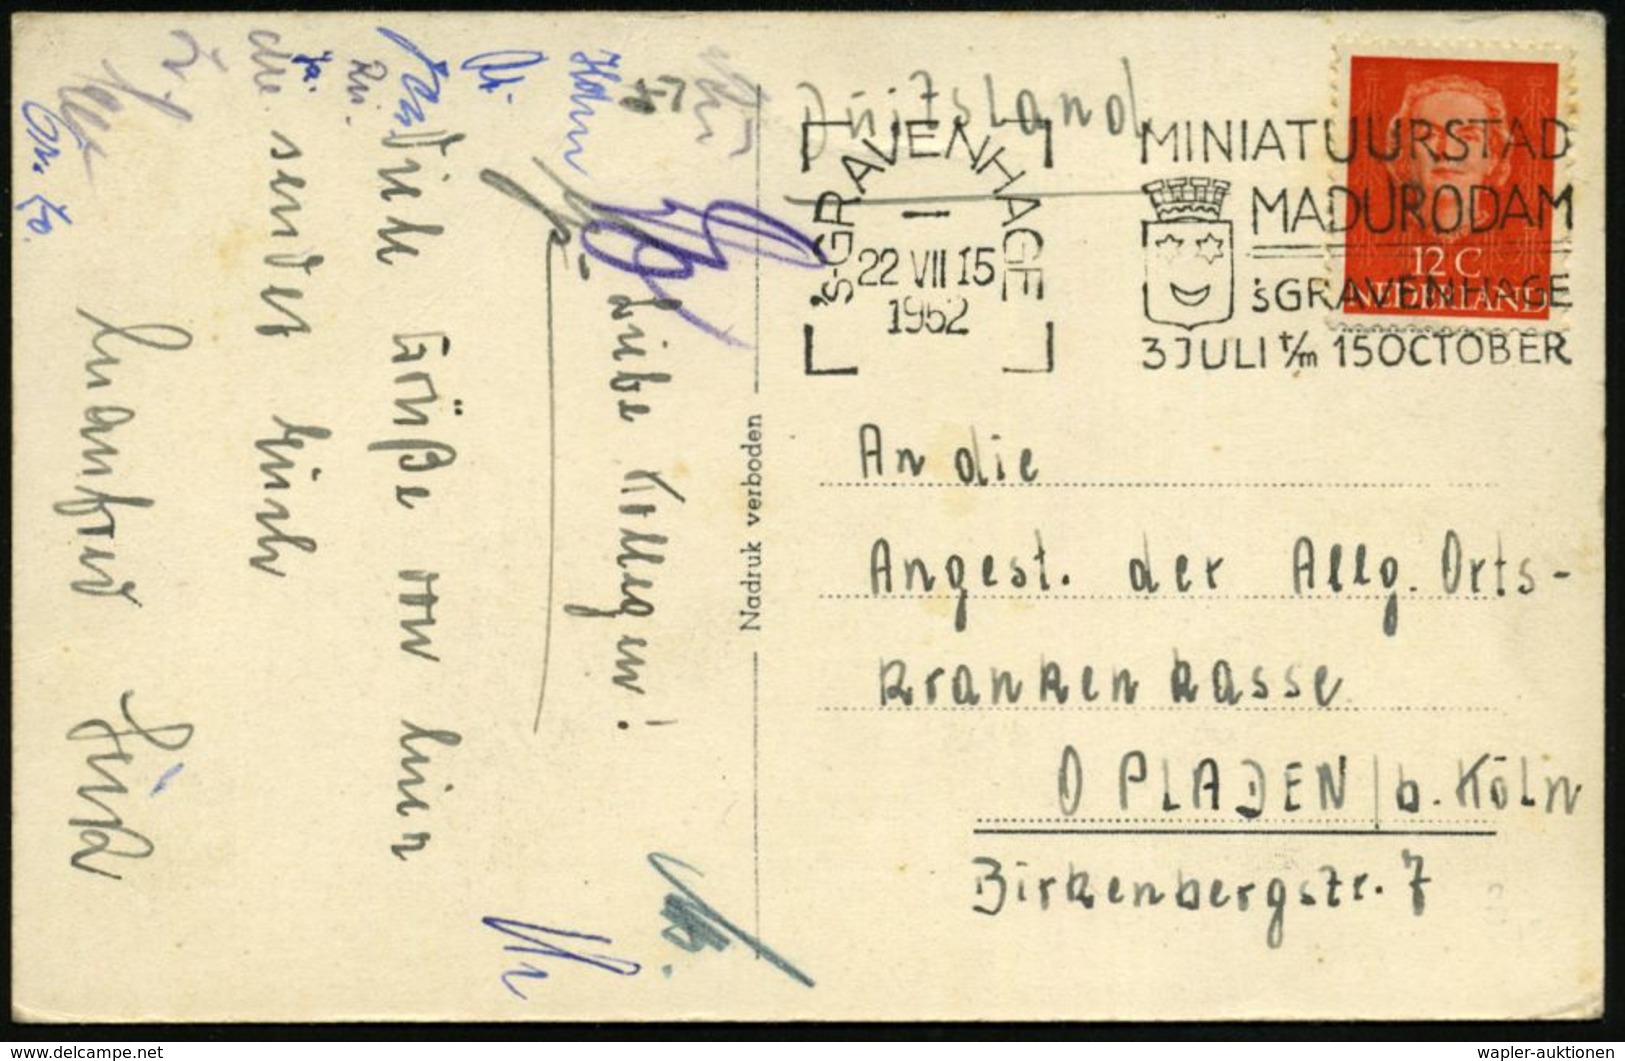 Duitsland
'S-GRAVENHAGE
1
22 VII 15
1952
MINIATUURSTAD
MADURODAM
'SGRAVENHAGE
3 JULI t/m 15 OCTOBER
12 C
NEDERLAND
An die
Angest. der Allg. Orts-
krankenkasse
OPLADEN / b. Köln
Birkenbergstr. 7
Nadruk verboden
Liebe Kollegen!
Viele Grüße von hier
sendet Euch
Manfred
wapler-auktionen